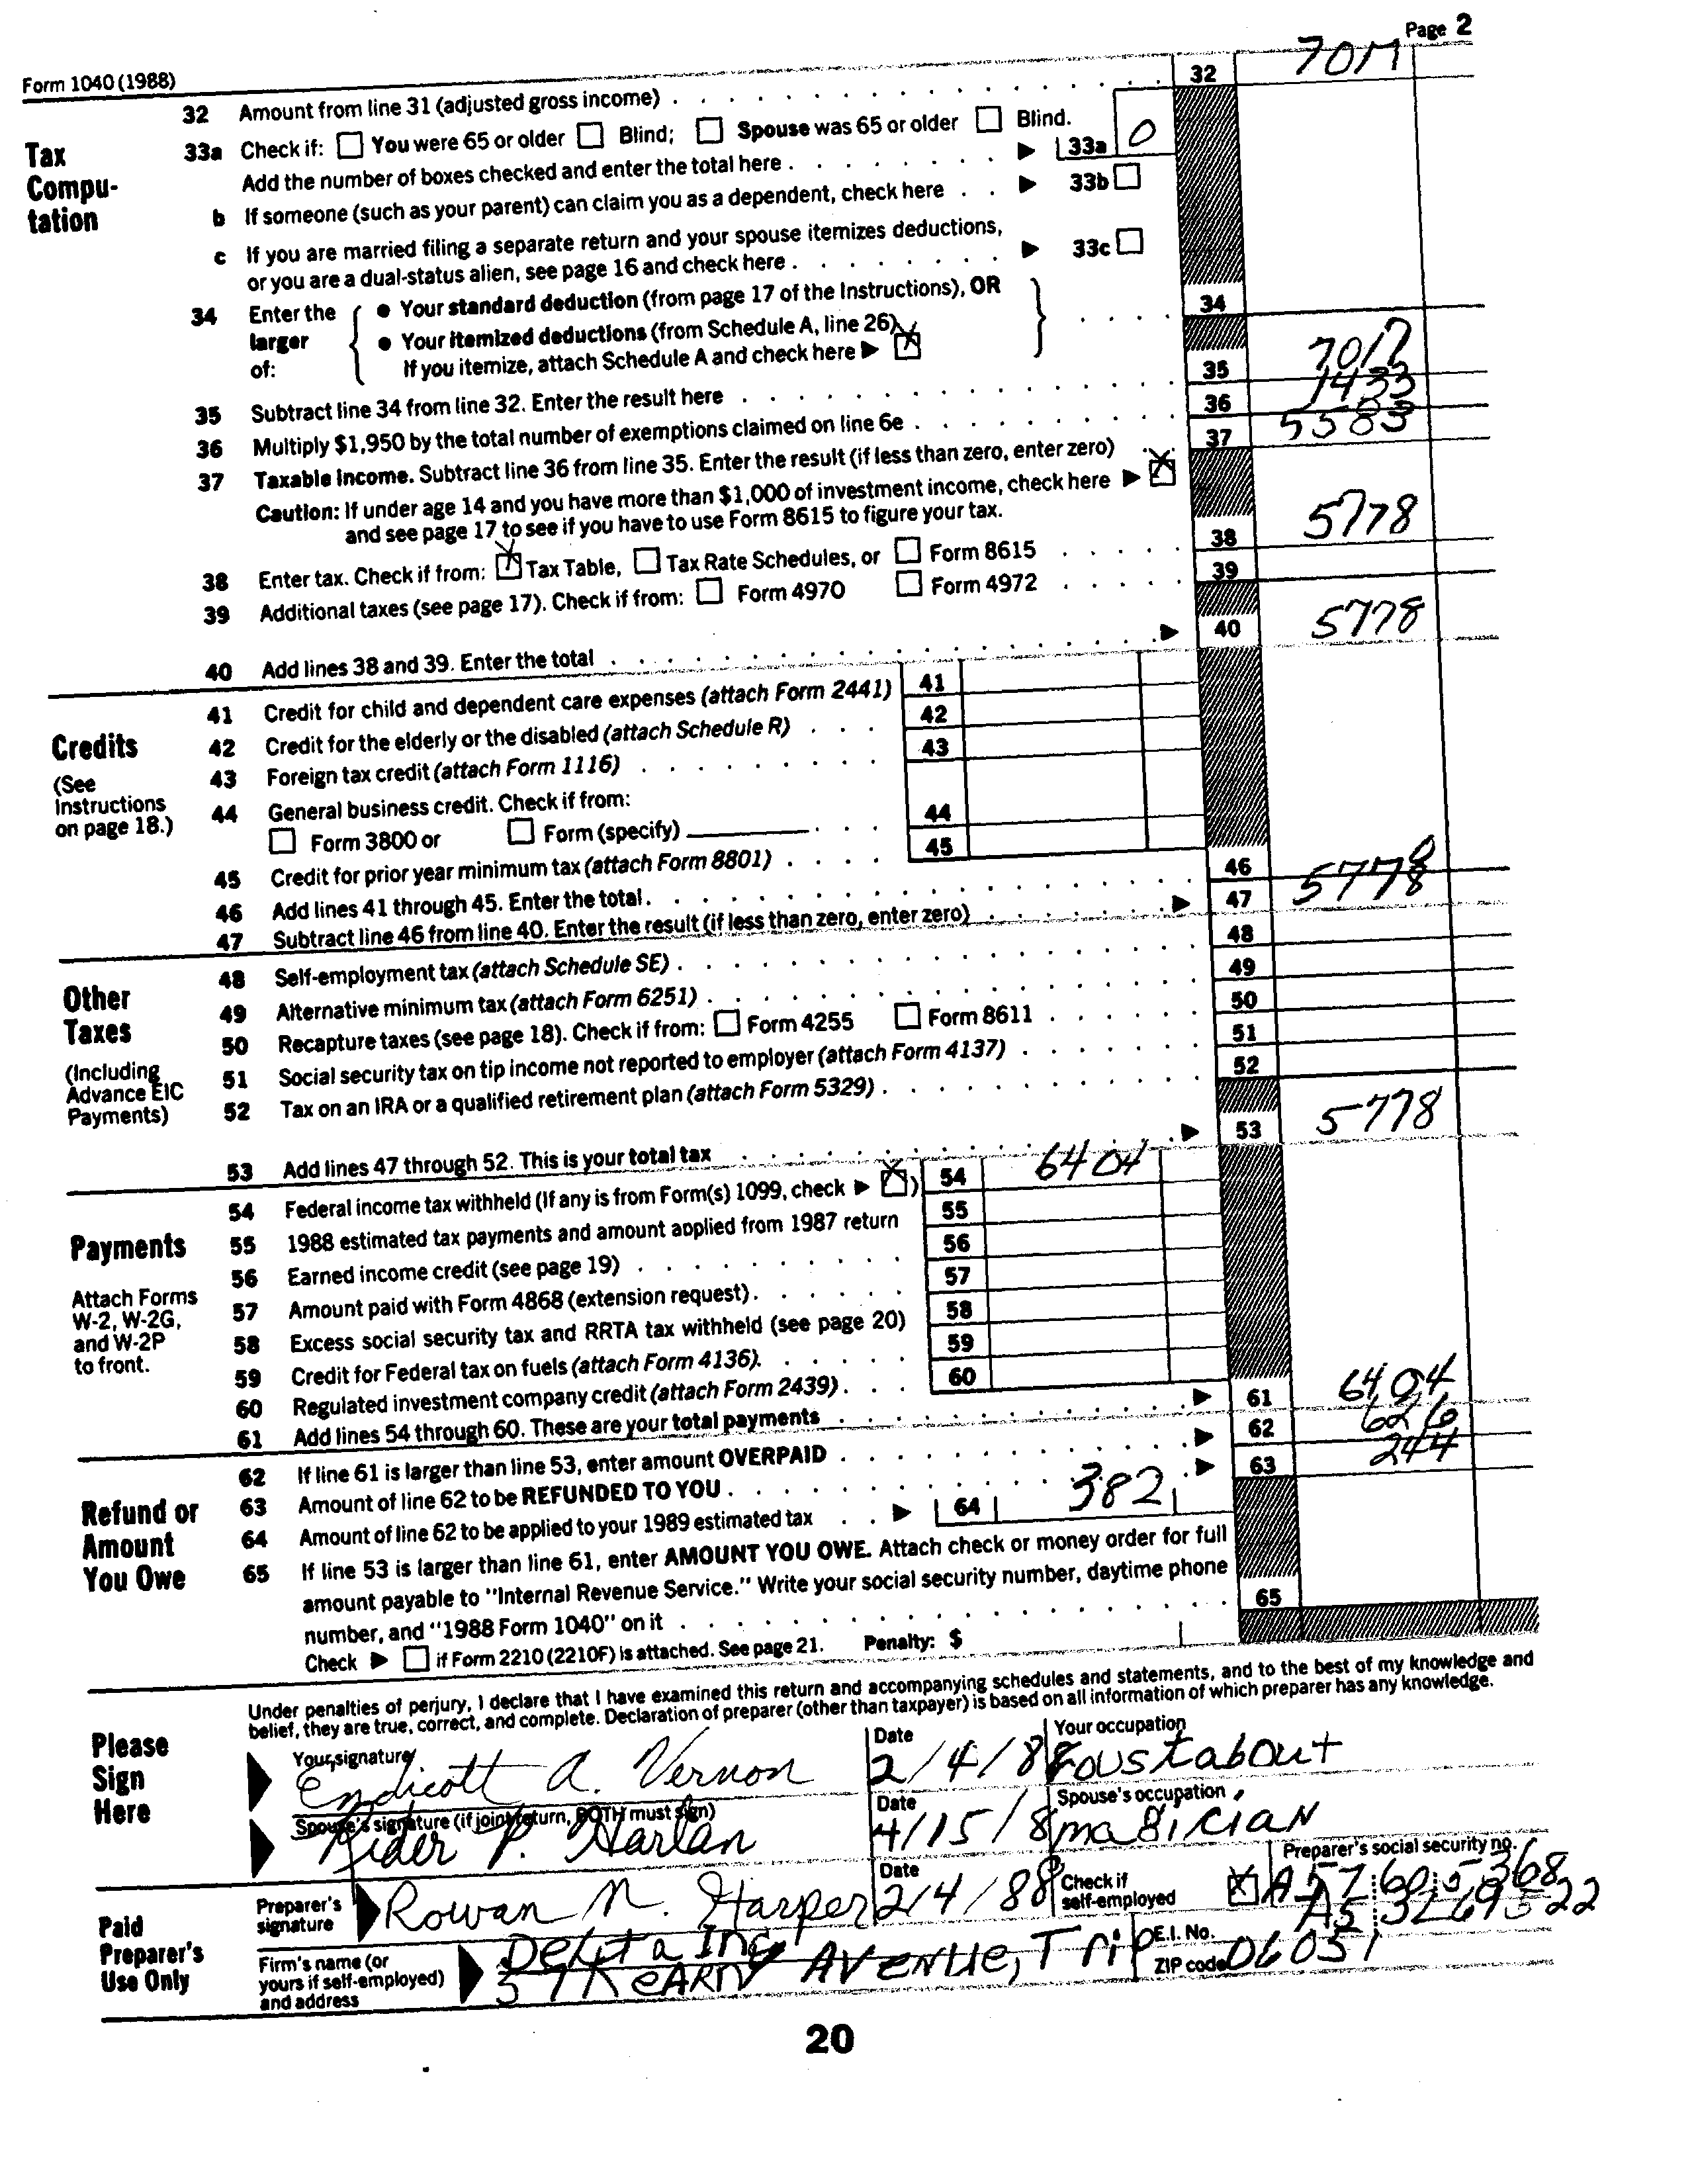 Page 2
Form 1040 (1988)
32 Amount from line 31 (adjusted gross income) 32 7017
Tax Compu-tation
33a Check if: You were 65 or older Blind; Spouse was 65 or older Blind.
Add the number of boxes checked and enter the total here ▶ 33a 0
b If someone (such as your parent) can claim you as a dependent, check here ▶ 33b
c If you are married filing a separate return and your spouse itemizes deductions,
or you are a dual-status alien, see page 16 and check here ▶ 33c
34 Enter the larger of:
● Your standard deduction (from page 17 of the Instructions), OR
● Your itemized deductions (from Schedule A, line 26)
If you itemize, attach Schedule A and check here ▶ X
34
35 Subtract line 34 from line 32. Enter the result here 35 7017
36 Multiply $1,950 by the total number of exemptions claimed on line 6e 36 1433
37 Taxable income. Subtract line 36 from line 35. Enter the result (if less than zero, enter zero) 37 5583
Caution: If under age 14 and you have more than $1,000 of investment income, check here ▶ X
and see page 17 to see if you have to use Form 8615 to figure your tax.
38 Enter tax. Check if from: X Tax Table, Tax Rate Schedules, or Form 8615 38 5778
39 Additional taxes (see page 17). Check if from: Form 4970 Form 4972 39
40 Add lines 38 and 39. Enter the total ▶ 40 5778
Credits
(See Instructions on page 18.)
41 Credit for child and dependent care expenses (attach Form 2441) 41
42 Credit for the elderly or the disabled (attach Schedule R) 42
43 Foreign tax credit (attach Form 1116) 43
44 General business credit. Check if from:
Form 3800 or Form (specify) 44
45 Credit for prior year minimum tax (attach Form 8801) 45
46 Add lines 41 through 45. Enter the total 46 0
47 Subtract line 46 from line 40. Enter the result (if less than zero, enter zero) ▶ 47 5778
Other Taxes
(Including Advance EIC Payments)
48 Self-employment tax (attach Schedule SE) 48
49 Alternative minimum tax (attach Form 6251) 49
50 Recapture taxes (see page 18). Check if from: Form 4255 Form 8611 50
51 Social security tax on tip income not reported to employer (attach Form 4137) 51
52 Tax on an IRA or a qualified retirement plan (attach Form 5329) 52
53 Add lines 47 through 52. This is your total tax ▶ 53 5778
Payments
Attach Forms W-2, W-2G, and W-2P to front.
54 Federal income tax withheld (If any is from Form(s) 1099, check ▶ X) 54 6404
55 1988 estimated tax payments and amount applied from 1987 return 55
56 Earned income credit (see page 19) 56
57 Amount paid with Form 4868 (extension request) 57
58 Excess social security tax and RRTA tax withheld (see page 20) 58
59 Credit for Federal tax on fuels (attach Form 4136) 59
60 Regulated investment company credit (attach Form 2439) 60
61 Add lines 54 through 60. These are your total payments ▶ 61 6404
Refund or Amount You Owe
62 If line 61 is larger than line 53, enter amount OVERPAID ▶ 62 626
63 Amount of line 62 to be REFUNDED TO YOU ▶ 63 244
64 Amount of line 62 to be applied to your 1989 estimated tax ▶ 64 382
65 If line 53 is larger than line 61, enter AMOUNT YOU OWE. Attach check or money order for full
amount payable to "Internal Revenue Service." Write your social security number, daytime phone
number, and "1988 Form 1040" on it 65
Check ▶ if Form 2210 (2210F) is attached. See page 21. Penalty: $
Please Sign Here
Under penalties of perjury, I declare that I have examined this return and accompanying schedules and statements, and to the best of my knowledge and
belief, they are true, correct, and complete. Declaration of preparer (other than taxpayer) is based on all information of which preparer has any knowledge.
Your signature Date Your occupation
Endicott A. Vernon 2/4/88 roustabout
Spouse's signature (if joint return, BOTH must sign) Date Spouse's occupation
Rider P. Harlan 4/15/8 magician
Paid Preparer's Use Only
Preparer's signature Date Check if self-employed Preparer's social security no.
Rowan N. Harper 2/4/88 X A57 60 5368
Firm's name (or yours if self-employed) and address E.I. No. ZIP code
Delta Inc
57 Kearny Avenue, Trip 06051
20